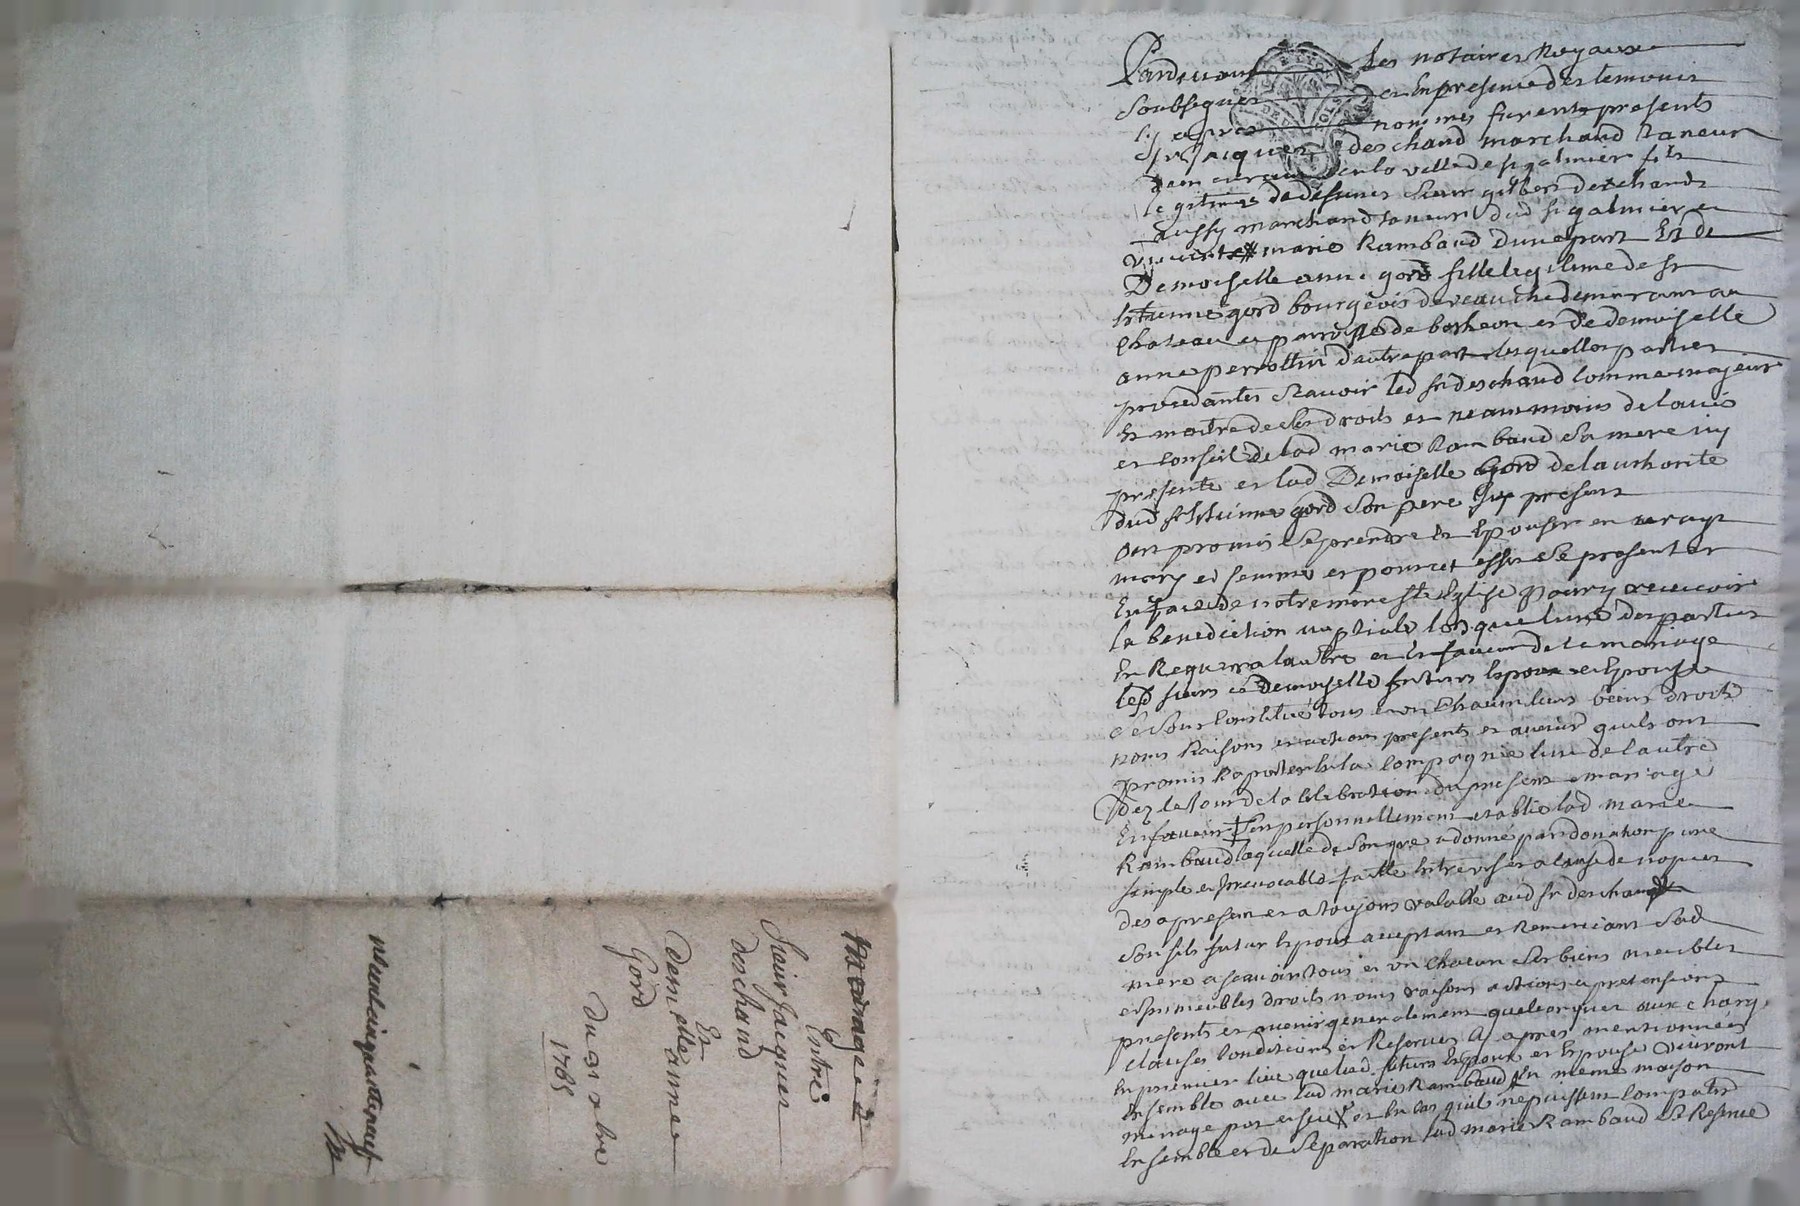 Mariage
Entre
Sieur Jacques
deschaud
Et
demelle anne
Gord
du 31 xbre
1705
Pardevant les notaires Royaux
Soubsignes et En presence des temoins
cy apres nommes furent presents
Sr Jacques deschaud marchand taneur
demeurant en la ville de st galmier fils
legitimes de deffunct Sieur gilbert deschaud
aussy marchand taneur dud st galmier et
vivante marie Rambaud d'une part Et de
Demoiselle anne gord fille legitime de sr
Estienne gord bourgeois de veauche demeurant au
Chateau et parroisse de botheon et de demoiselle
anne perrottin d'autre part lesquelles parties
procedantes Scavoir led sr deschaud comme majeur
Et maitre de ses droits et neanmoins de l'avis
et conseil de lad marie Rambaud Sa mere icy
presente et lad Demoiselle Gord de l'authorité
dud sr Estienne gord Son pere icy present
ont promis Se prendre Et Epouser en vrays
mary et femme et pour cet effet Se presenter
En face de notre mere ste Eglise pour y recevoir
la benediction nuptiale lors que l'une des parties
En Requerra l'autre et En faveur de ce mariage
lesd sieurs et Demoiselle futurs Epoux et Epouse
ce Sont Constitué tous et un Chacun leurs biens droits
noms Raisons et actions presents et avenir quils ont
promis Raporter En la Compagnie l'un de l'autre
dez le Jour de la Celebration du present mariage
En faveur S'en personnellement establie lad marie
Rambaud laquelle de Son gre a donné par donation pure
simple et Irrevocable faitte Entre vifs et a cause de nopces
des a present et a toujours valable aud sr deschaud
Son fils futur Epoux acceptant et Remerciant Sad
mere a scavoir tous et un chacun Ses biens meubles
et Immeubles droits noms raisons actions et pretensions
presents et avenir generalement quelconques aux charges
clauses Conditions et Reserves Cy apres mentionnées
En premier lieu que lesd futurs Epoux et Epouse vivront
Ensemble avec lad marie Rambaud En meme maison
menage pot et feu et En cas quils ne puissent Compatir
Ensemble et de Separation lad marie Rambaud Se Reserve